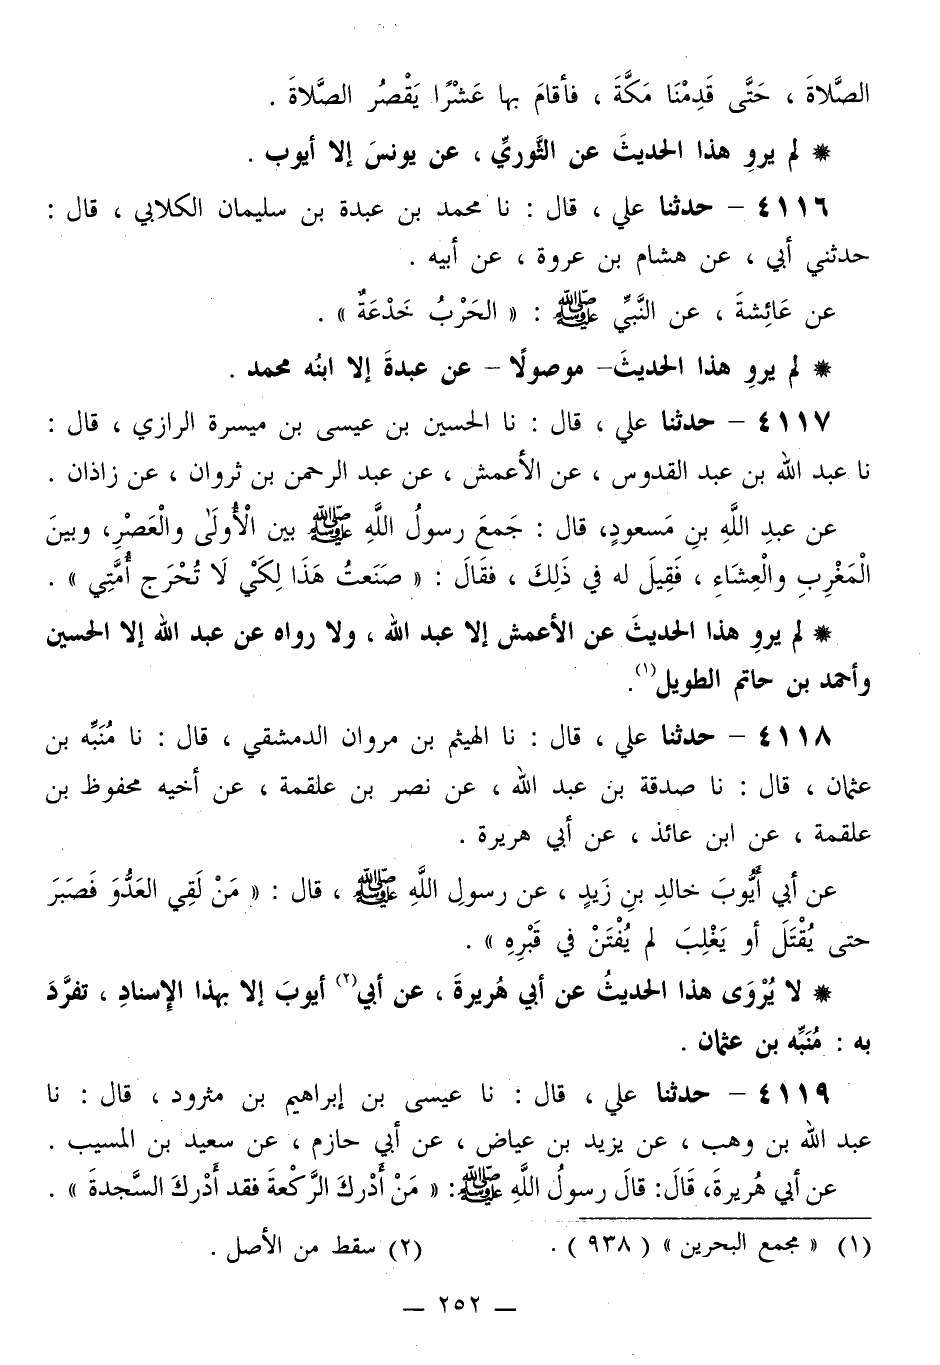 الصَّلاةَ ، حَتَّى قَدِمْنَا مَكَّةَ ، فأقامَ بها عَشْرًا يَقْصُر الصَّلاةَ .
* لم يروِ هذا الحديثَ عن الثَّوريِّ ، عن يونسَ إلا أيوب .
٤١١٦ – حدثنا علي ، قال : نا محمد بن عبدة بن سليمان الكلابي ، قال :
حدثني أبي ، عن هشام بن عروة ، عن أبيه .
عن عَائِشةَ ، عن النَّبيِّ ﷺ : « الحَرْبُ خَدْعَةٌ » .
* لم يروِ هذا الحديثَ– موصولًا – عن عبدةَ إلا ابنُه محمد .
٤١١٧ – حدثنا علي ، قال : نا الحسين بن عيسى بن ميسرة الرازي ، قال :
نا عبد الله بن عبد القدوس ، عن الأعمش ، عن عبد الرحمن بن ثروان ، عن زاذان .
عن عبدِ اللَّهِ بنِ مَسعودٍ، قال : جَمعَ رسولُ اللَّهِ ﷺ بين الْأُولَى والْعَصْرِ، وبينَ
الْمَغْرِبِ والْعِشَاءِ ، فَقِيلَ له في ذَلِكَ ، فقَالَ : « صَنَعتُ هَذَا لِكَيْ لَا تُحْرَج أُمَّتِي » .
* لم يروِ هذا الحديثَ عن الأعمش إلا عبد الله ، ولا رواه عن عبد الله إلا الحسين
وأحمد بن حاتم الطويل(١).
٤١١٨ – حدثنا علي ، قال : نا الهيثم بن مروان الدمشقي ، قال : نا مُنَبِّه بن
عثمان ، قال : نا صدقة بن عبد الله ، عن نصر بن علقمة ، عن أخيه محفوظ بن
علقمة ، عن ابن عائذ ، عن أبي هريرة .
عن أبي أَيُّوبَ خالدِ بنِ زَيدٍ ، عن رسولِ اللَّهِ ﷺ ، قال : « مَنْ لَقِي العَدُّوَ فَصَبَرَ
حتى يُقْتَلَ أو يَغْلِبَ لم يُفْتَنْ في قَبْرِهِ » .
* لا يُرْوَى هذا الحديثُ عن أبي هُريرةَ ، عن أبي(٢) أيوبَ إلا بهذا الإِسنادِ ، تفرَّدَ
به : مُنَبِّه بن عثمان .
٤١١٩ – حدثنا علي ، قال : نا عيسى بن إبراهيم بن مثرود ، قال : نا
عبد الله بن وهب ، عن يزيد بن عياض ، عن أبي حازم ، عن سعيد بن المسيب .
عن أبي هُريرةَ، قَالَ: قالَ رسولُ اللَّهِ ﷺ: « مَنْ أَدْركَ الرَّكْعةَ فقد أَدْركَ السَّجدةَ » .
(١) « مجمع البحرين » ( ٩٣٨ ) . (٢) سقط من الأصل .
— ٢٥٢ —